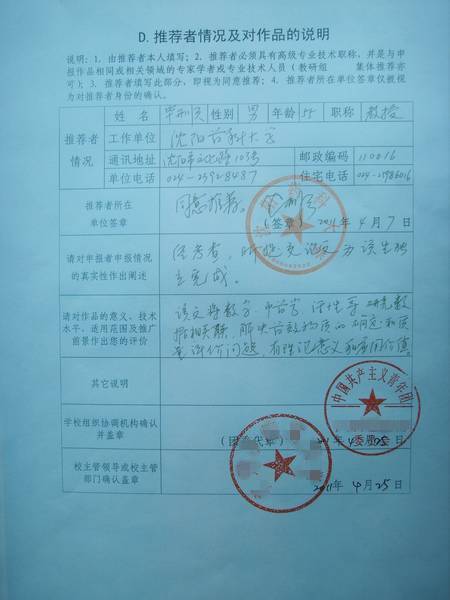 D. 推荐者情况及对作品的说明
说明: 1. 由推荐者本人填写; 2. 推荐者必须具有高级专业技术职称, 并是与申
报作品相同或相关领域的专家学者或专业技术人员 (教研组 集体推荐亦
可); 3. 推荐者填写此部分, 即视为同意推荐; 4. 推荐者所在单位签章仅被视
为对推荐者身份的确认。
推荐者
情况
姓 名 性别 男 年龄 职称 教授
工作单位 沈阳药科大学
通讯地址 沈阳市文化路103号 邮政编码 110016
单位电话 住宅电话
推荐者所在
单位签章
同意推荐。
(签章) 2011年4月7日
请对申报者申报情况
的真实性作出阐述
经考查, 所提交论文为该生独
立完成。
请对作品的意义、技术
水平、适用范围及推广
前景作出您的评价
该文将数学、中药学、活性等研究数
据相关联, 解决药效物质的确定和质
量评价问题, 有理论意义和实用价值
其它说明
中国共产主义青年团
委员会
学校组织协调机构确认
并盖章
校主管领导或校主管
部门确认盖章
2011年4月25日